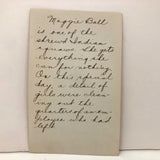 Maggie Ball
is one of the
shrewd Indian
squaws. She gets
everything she
can for nothing
On this special
day, a detail of
girls were clean-
ing out the
quarters of an em-
ployee who had
left